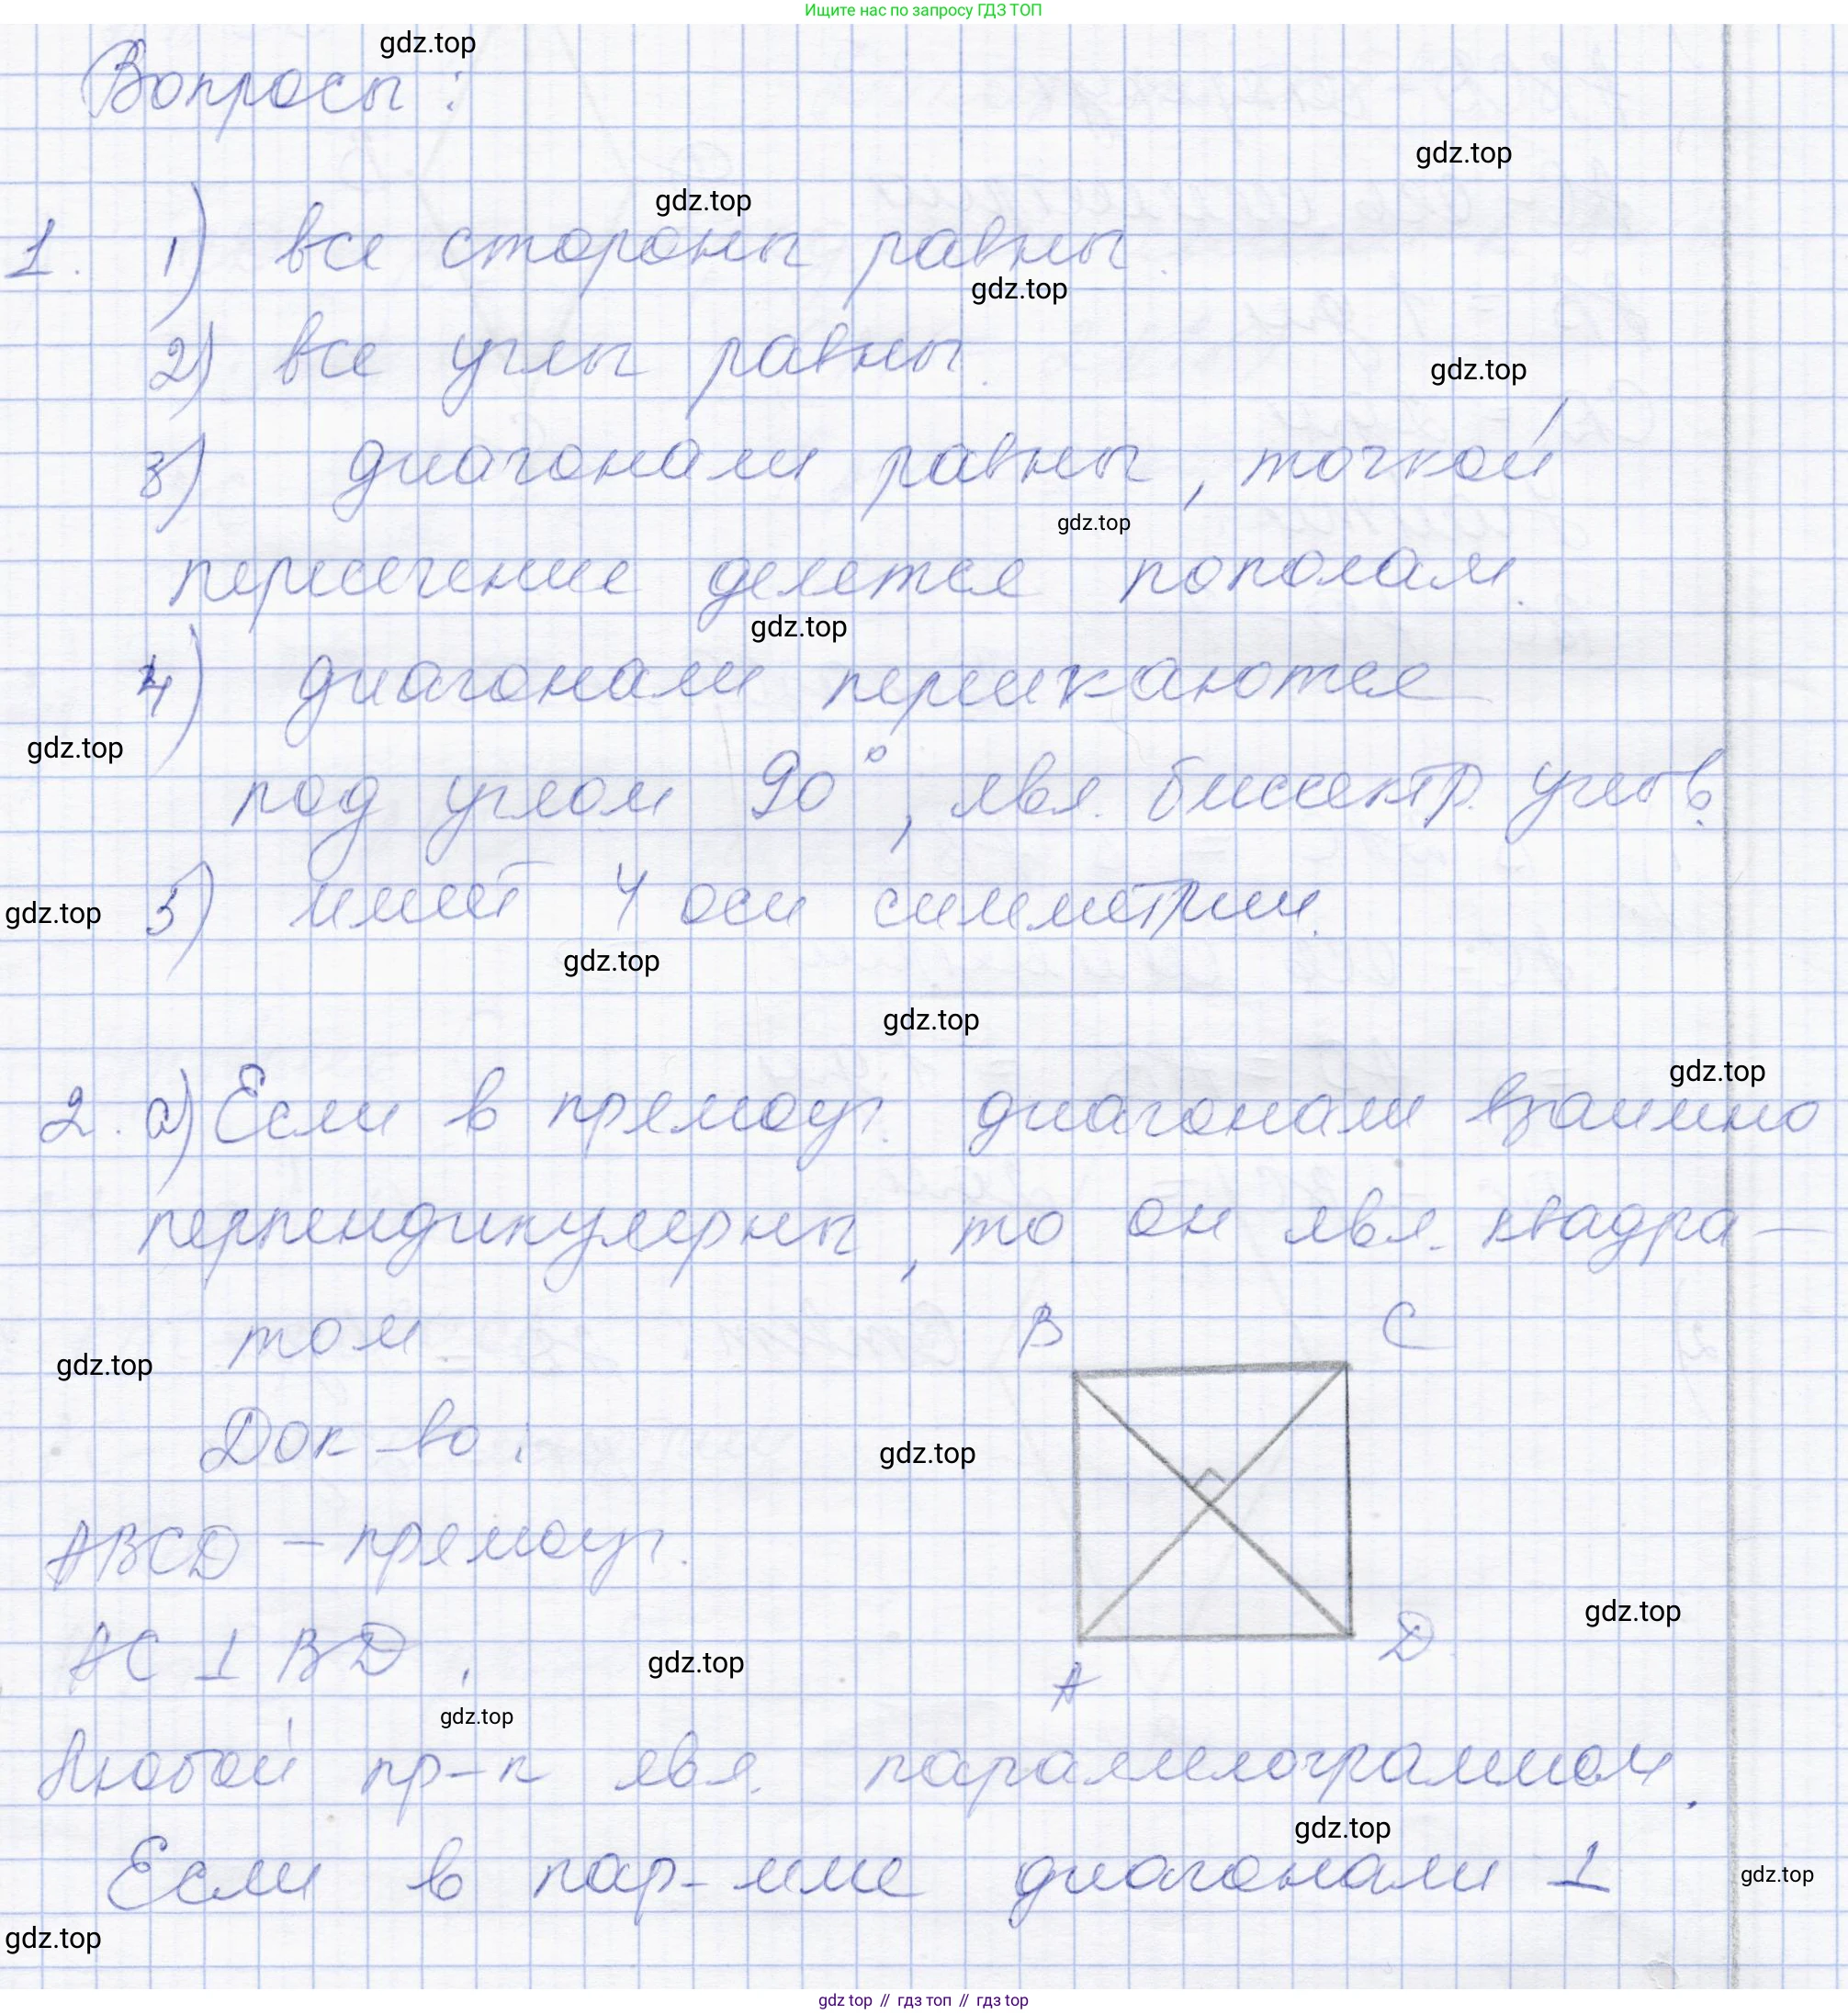 Ищите нас по запросу ГДЗ ТОП
gdz.top
Вопросы:
gdz.top
gdz.top
1. 1) все стороны равны.
gdz.top
2) все углы равны.
gdz.top
3) диагонали равны, точкой
gdz.top
пересечение делятся пополам.
gdz.top
4) диагонали пересекаются
gdz.top
под углом 90°, явл. биссектр. углов.
5) имеет 4 оси симметрии.
gdz.top
gdz.top
gdz.top
gdz.top
2. а) Если в прямоуг. диагонали взаимно
перпендикулярны, то он явл. квадра-
том
B C
gdz.top
Док-во:
gdz.top
ABCD – прямоуг.
gdz.top
AC ⊥ BD,
D
gdz.top
A
gdz.top
Любой пр-к явл. параллелограммом.
gdz.top
Если в пар-мме диагонали ⊥
gdz.top
gdz.top
gdz top // гдз топ // гдз top